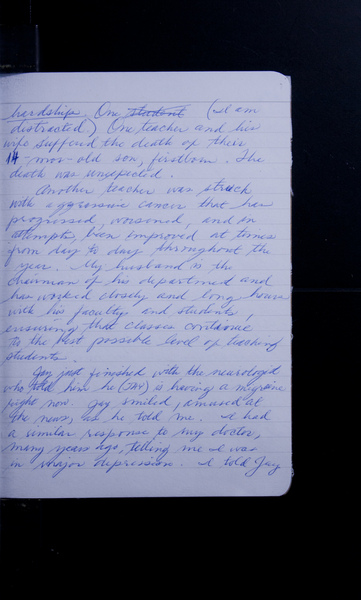 hardships. One student (I am
distracted) One teacher and his
wife suffered the death of their
14-mos-old son, firstborn. The
death was unexpected.
Another teacher was struck
with aggressive cancer that has
progressed, worsened, and in
attempts, been improved at times
from day to day throughout the
year. My husband is the
chairman of his department and
has worked closely and long hours
with his faculty and students,
ensuring that classes continue
to the best possible level of teaching
students.
Jay just finished with the neurologist
who told him he (JAY) is having a migraine
right now. Jay smiled, amused at
the news, as he told me. I had
a similar response to my doctor,
many years ago, telling me I was
in major depression. I told Jay